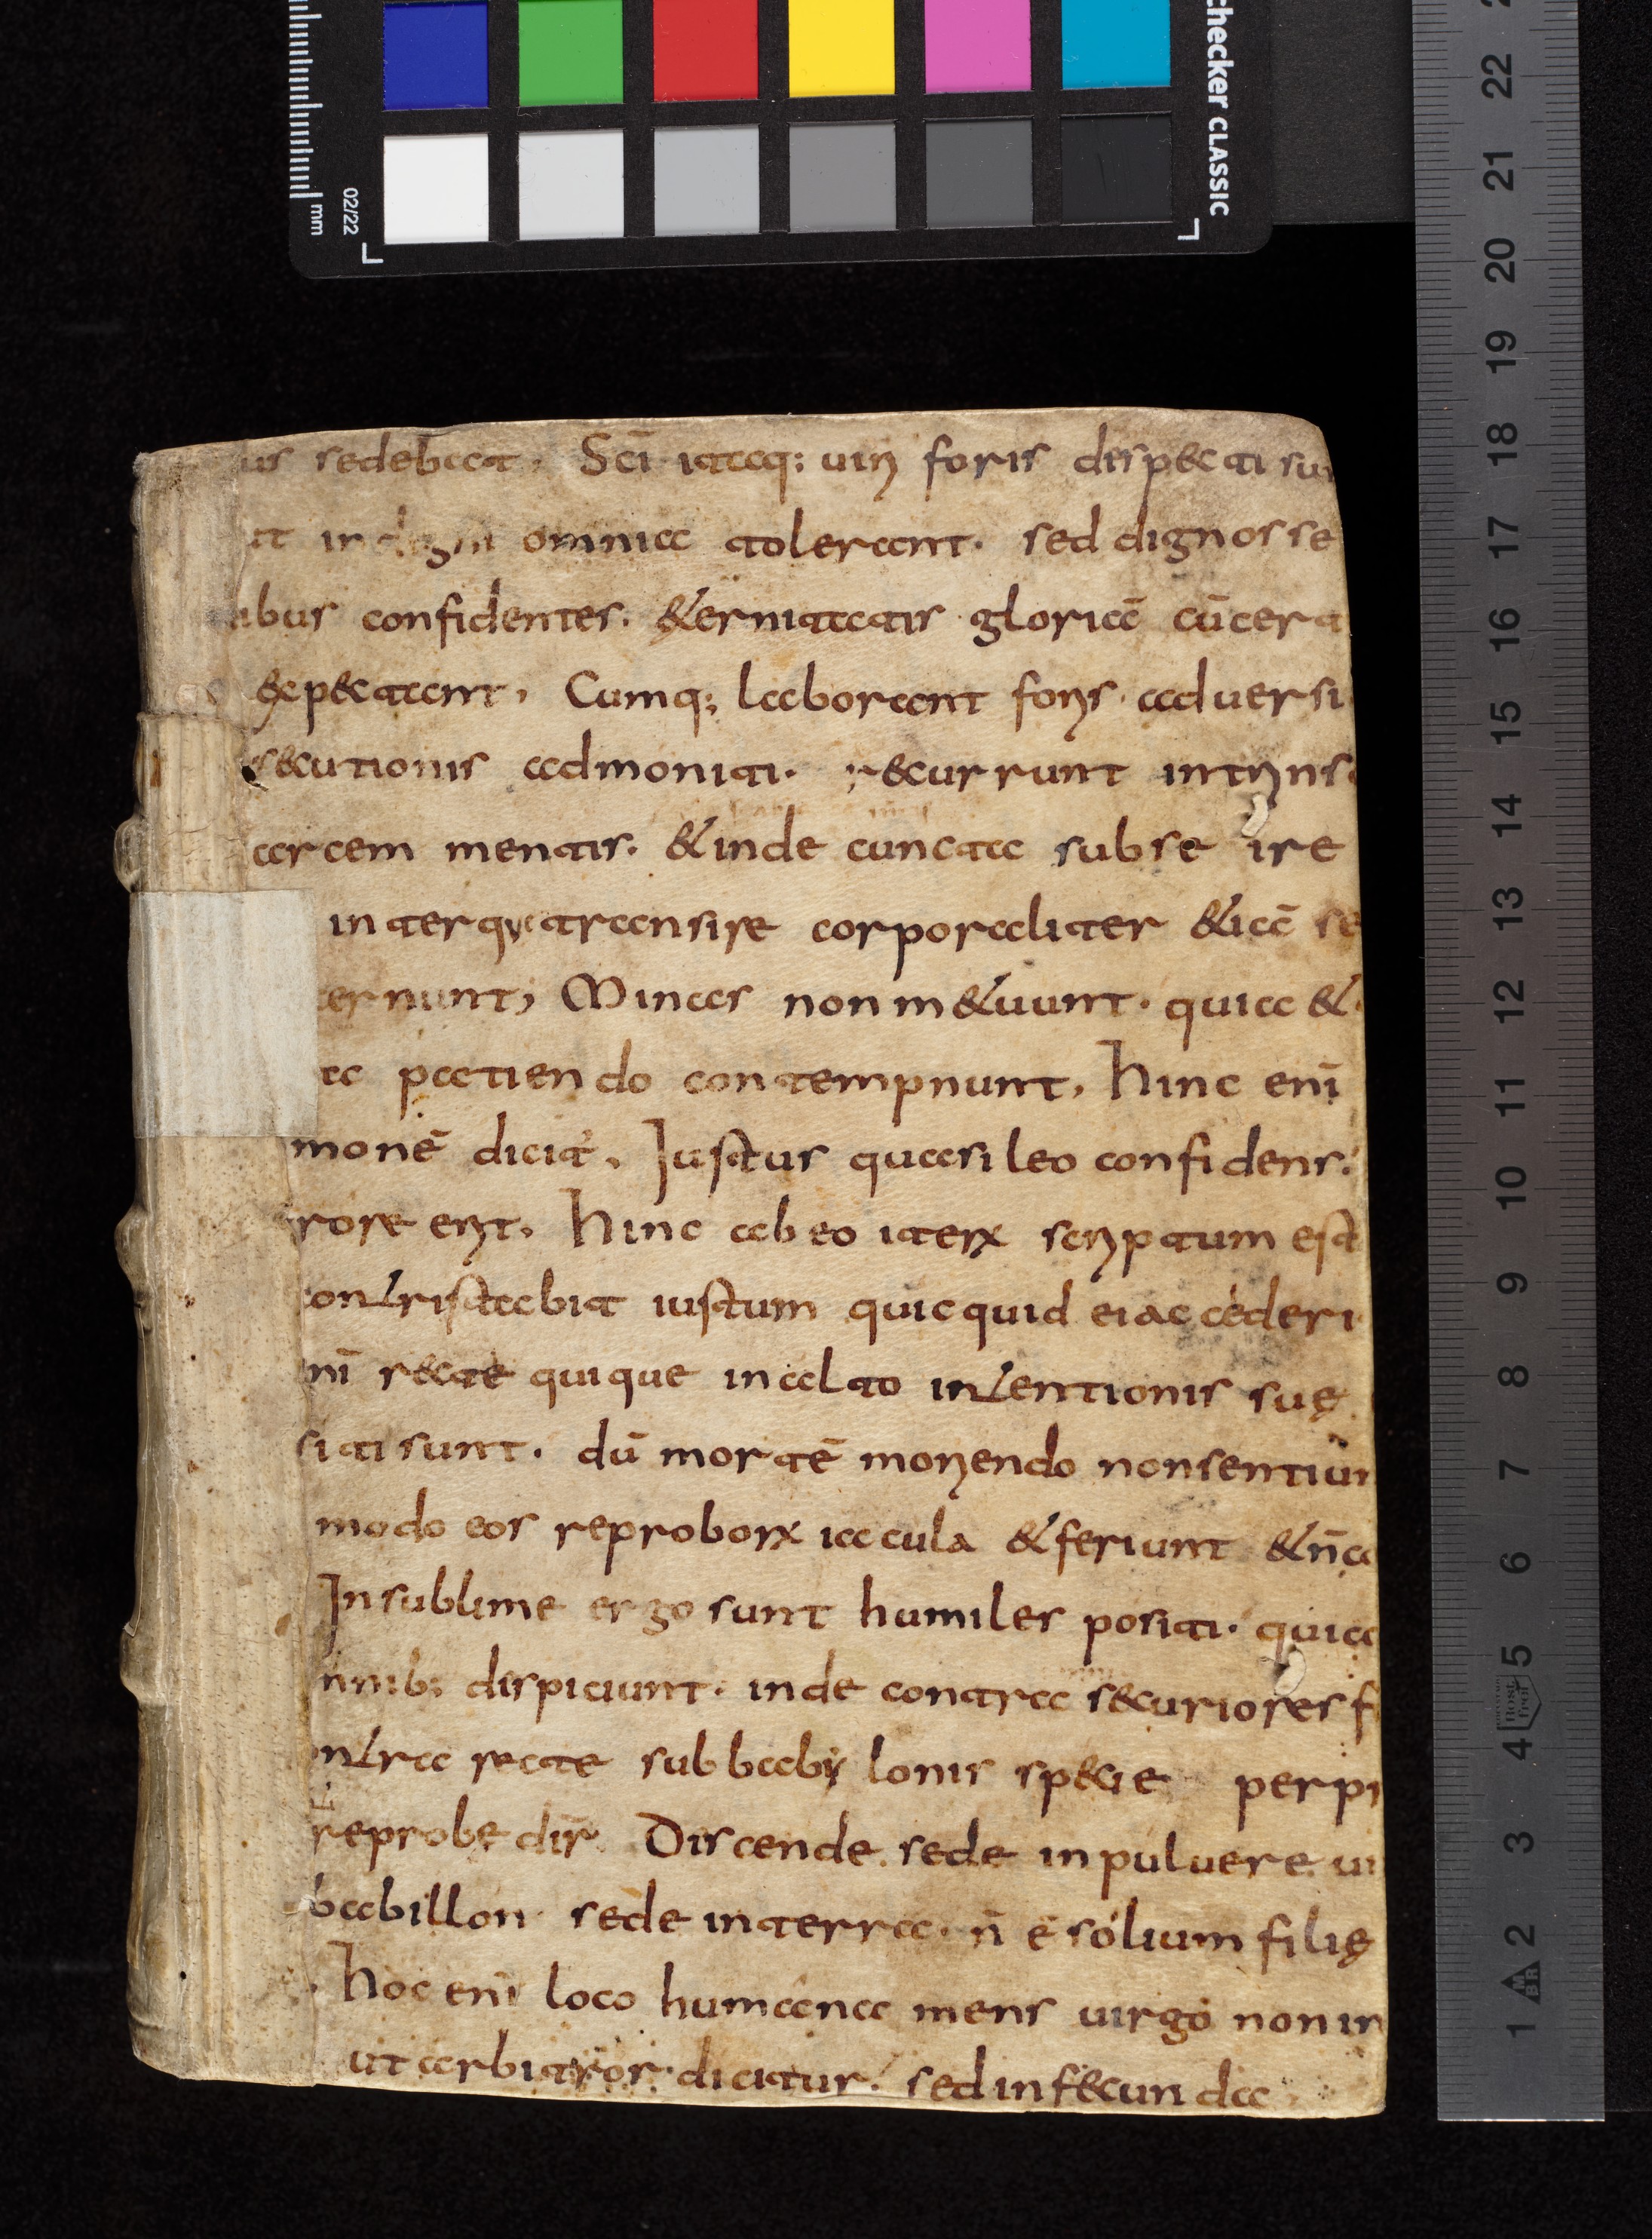 hecker CLASSIC
02/22
mm
22
21
20
19
18
17
16
15
14
13
12
11
10
9
8
7
6
5
4
3
2
1
us sedebat. Sci itaq: uiri foris dispecti sun
ut indigni omnia tolerant. sed dignos se
ibus confidentes. & ernitatis gloriā cū cert
expectant. Cumq; laborant foris aduersi
secutionis admoniti. recurrunt intrins
arcem mentis. & inde cuncta sub se ire
inter que transire corporaliter & iā se
cernunt, Minas non metuunt. quia &
ta patiendo contempnunt. Hinc enī
monē dicit. Iustus quasi leo confidens.
rore erit. Hinc ab eo iterx scriptum est
contristabit iustum quicquid ei accederi
nī recte quique in alto intentionis suę
siti sunt. dū mortē moriendo non sentiun
modo eos reproborx iacula & feriunt & n̄ ta
In sublime ergo sunt humiles positi. quia
nnib; dispiciunt. inde contra securiores f
ntra recte sub babylonis specie perpr
reprobe dir̄ Discende sede in puluere ui
babillon sede in terra. n̄ ē solium filię
Hoc enī loco humana mens uirgo non in
ut arbitror. dicitur. sed infecunda